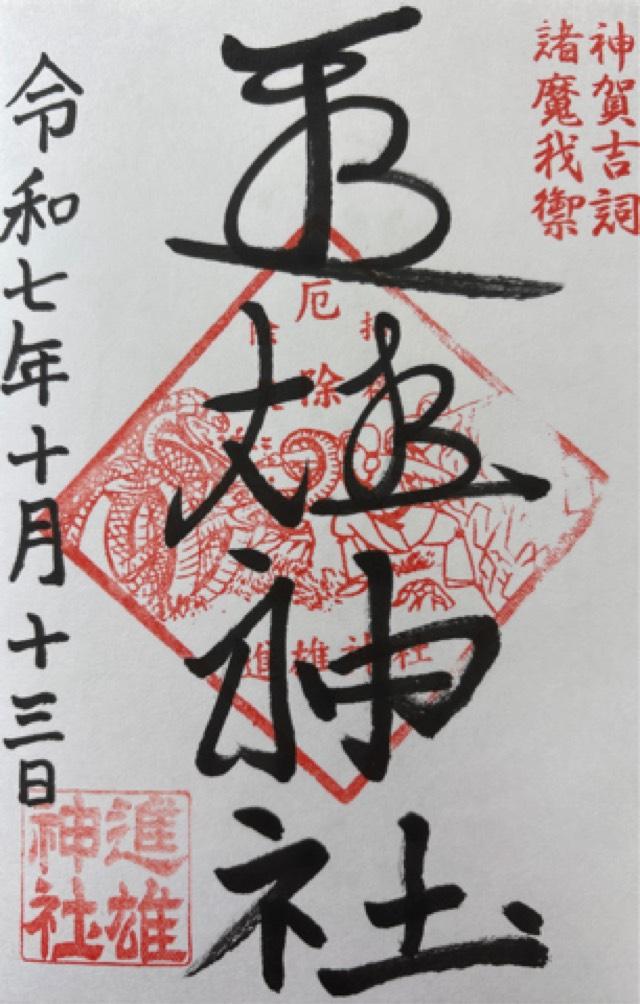 神賀吉詞
諸魔我禦
進雄神社
厄除
進雄神社
令和七年十月十三日
進雄
神社